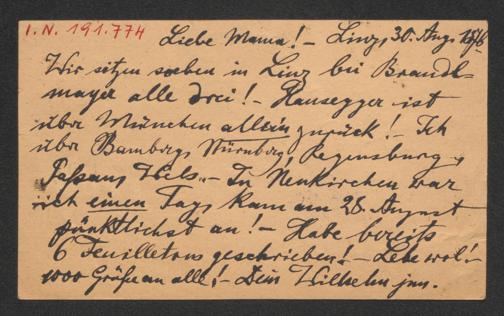 I. N. 191.774
Liebe Mama! – Linz, 30. Aug. 1876
Wir sitzen soeben in Linz bei Brandl-
mayer alle drei! – Hausegger ist
über München allein zurück! – Ich
über Bamberg, Nürnberg, Regensburg,
Passau, Wels. – In Neukirchen war
ich einen Tag, kam am 28. August
pünktlichst an! – Habe bereits
6 Feuilletons geschrieben! – Lebe wol! –
1000 Grüße an alle! – Dein Wilhelm jun.